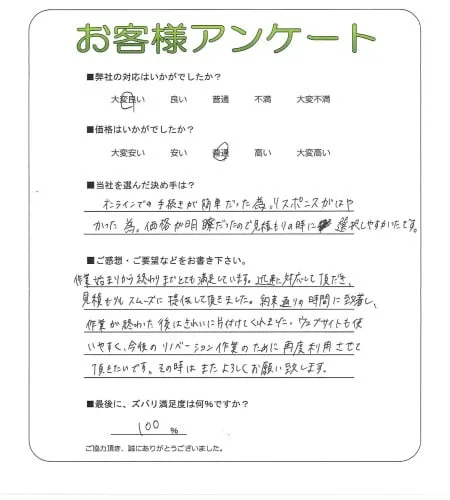 お客様アンケート
■弊社の対応はいかがでしたか？
大変良い 良い 普通 不満 大変不満
■価格はいかがでしたか？
大変安い 安い 普通 高い 大変高い
■当社を選んだ決め手は？
オンラインでの手続きが簡単だった為。リスポンスがはや
かった為。価格が明瞭だったので見積もりの時に選択しやすかったです。
■ご感想・ご要望などをお書き下さい。
作業始まりから終わりまでとても満足しています。迅速に対応して頂だき、
見積もりもスムーズに提供して頂きました。約束通りの時間に到着し、
作業が終わった後はきれいに片付けてくれました。ウェブサイトも使
いやすく、今後のリノベーション作業のために再度利用させて
頂きたいです。その時はまたよろしくお願い致します。
■最後に、ズバリ満足度は何%ですか？
100 %
ご協力頂き、誠にありがとうございました。